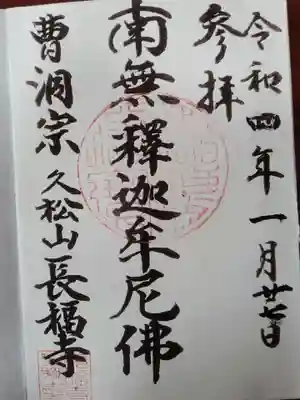 令和四年一月廿七日
參拝
南無釋迦牟尼佛
曹洞宗 久松山 長福寺